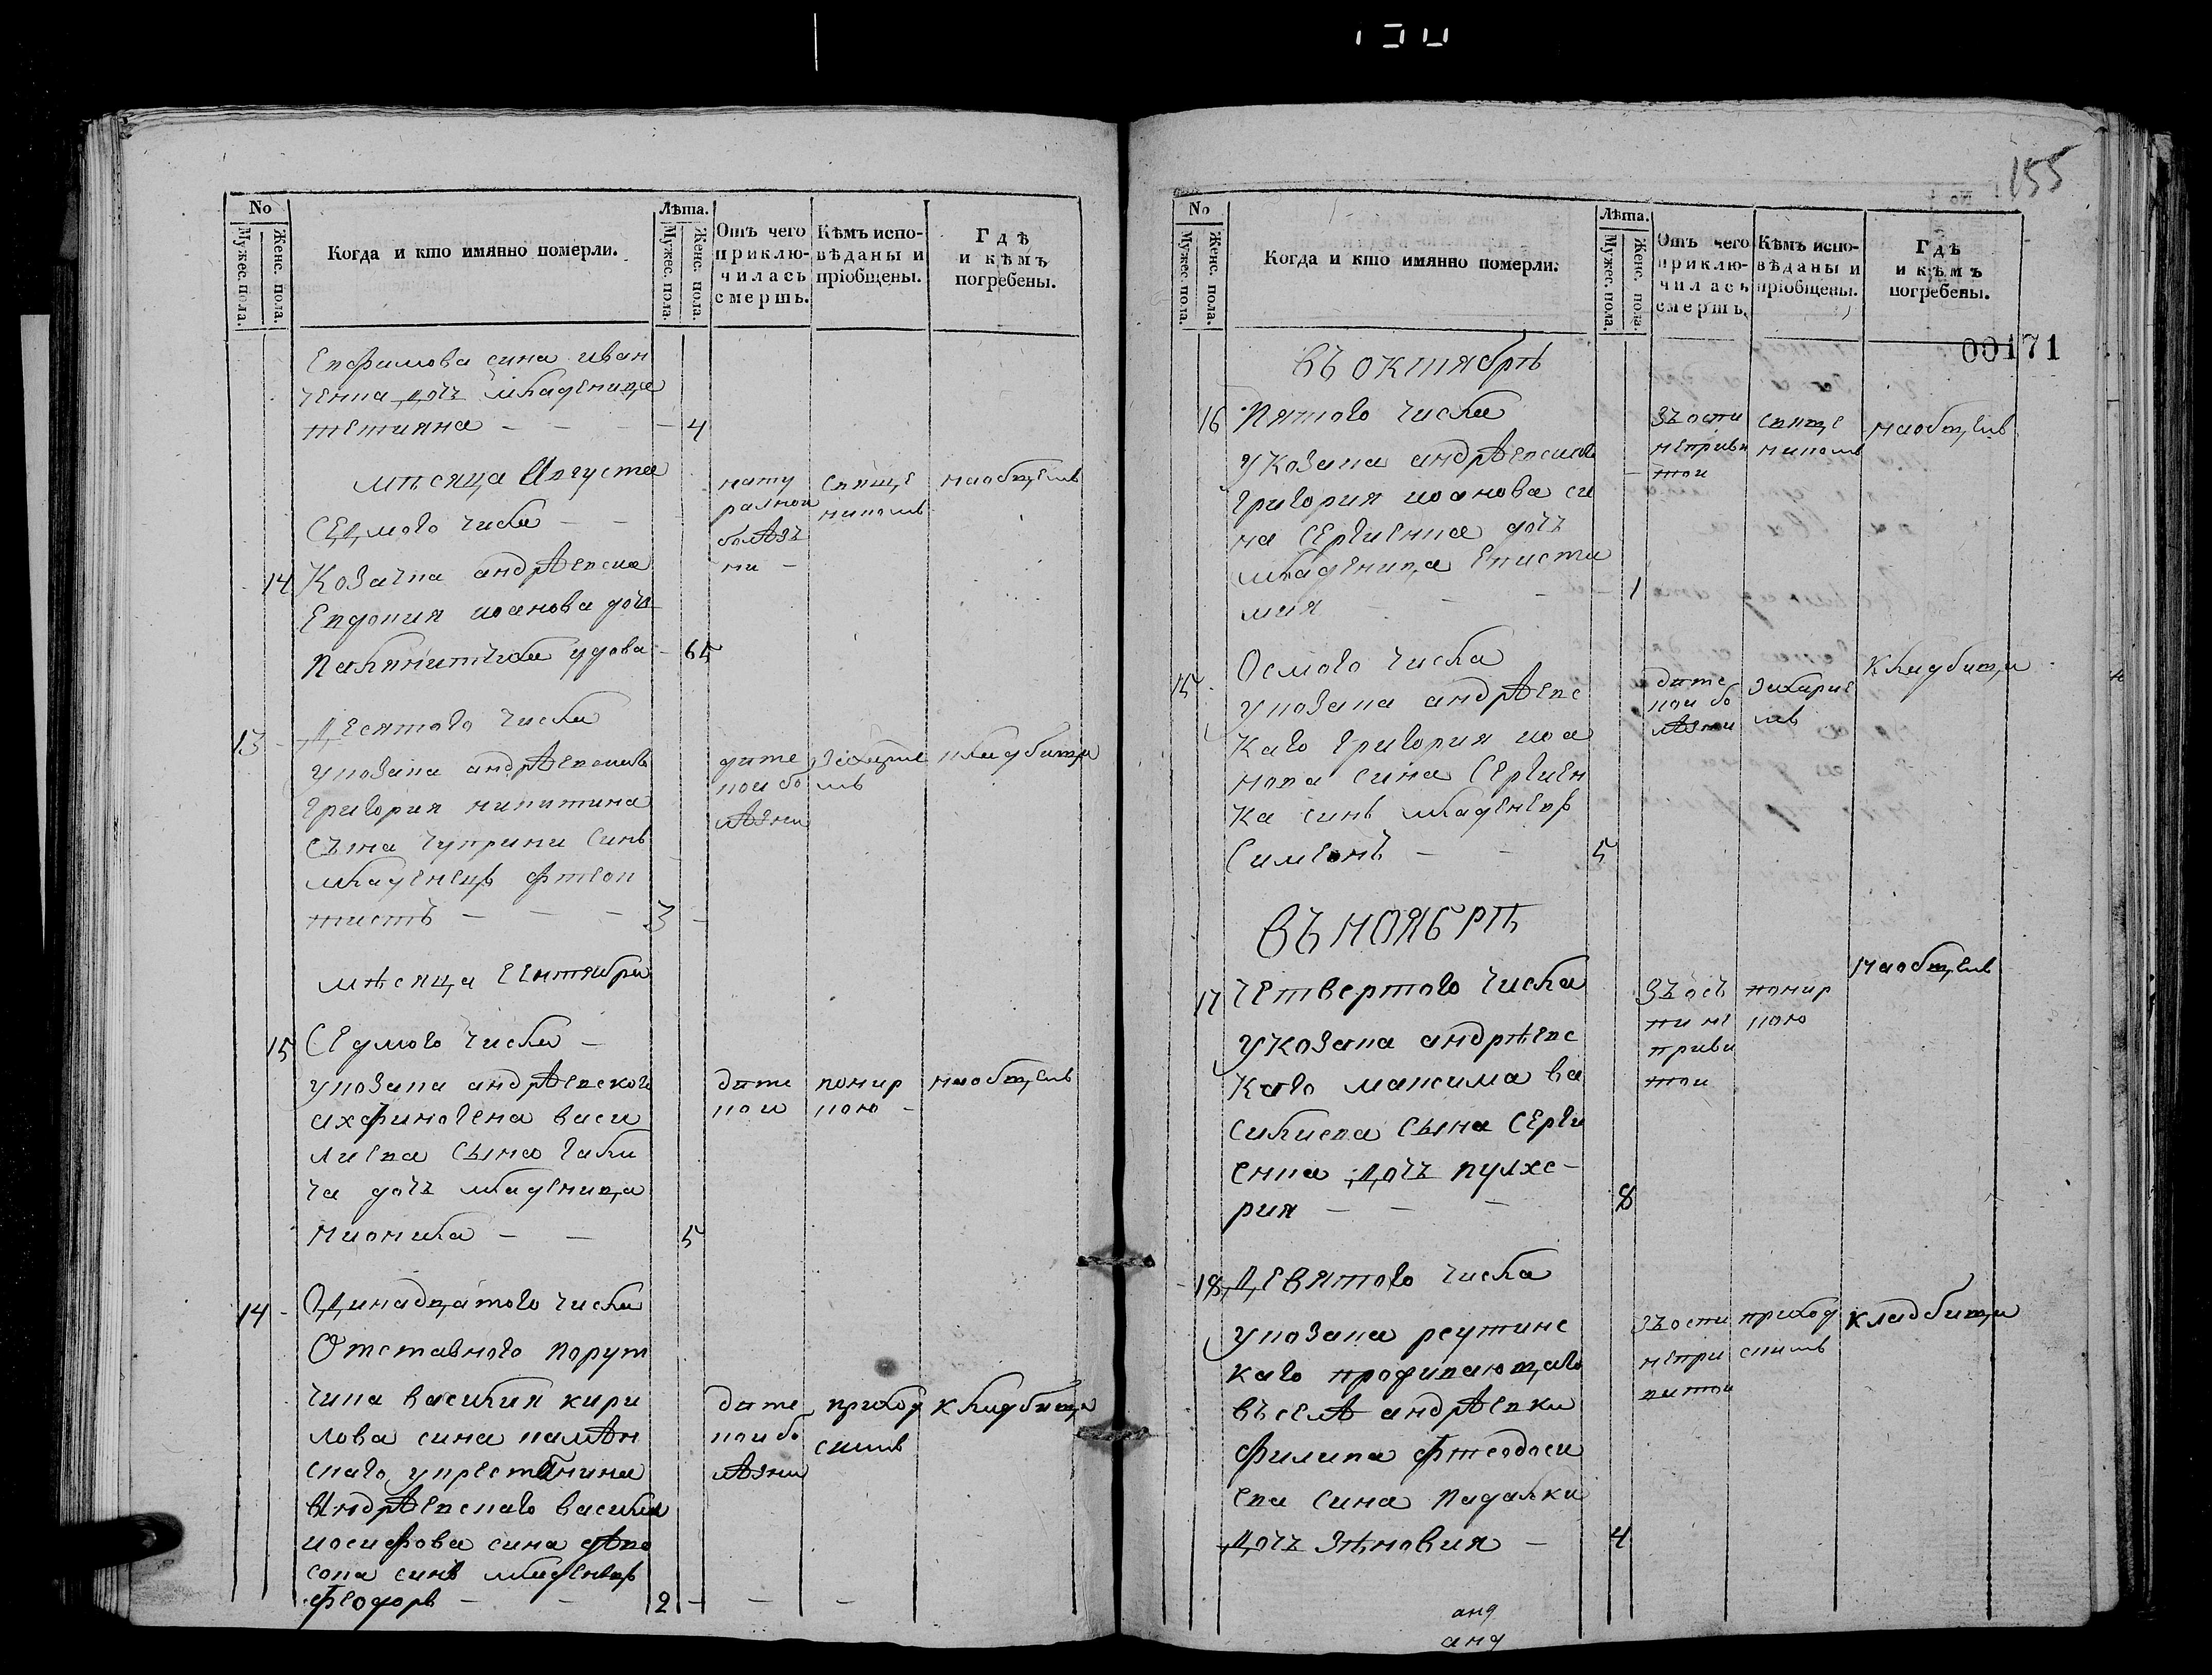 155
No
Мужес. пола.
Женс. пола.
Когда и кто имянно померли.
Лѣта.
Мужес. пола.
Женс. пола.
Отъ чего приклю-чилась смерть.
Кѣмъ испо-вѣданы и пріобщены.
Гдѣ и кѣмъ погребены.
Евфимова сина иван
ченка дочъ младеница
тетияна – – – – 4
мѣсяца Августа
Седмого числа – –
нату ралной болѣз ни –
свяще никомъ
наобщемъ
14 Козачка андрѣевска
Евдокия иоанова дочь
удова – 65
13 – Десятого числа
укозака андрѣевского
Григория никитина
съна чуприни синъ
младенецъ фтеок
тистъ – – – 3 –
дите кои бо лѣзни
захарие мъ
кладбищи
мѣсяца сентября
15 Седмого числа –
укозака андрѣевского
анфиногена васи
лиева сына гали
ча дочъ младеница
нионила – – 5
дите кои
наобщемъ
14 – Одинадцатого числа
Отставного порут
чика василия кири
лова сина
скаго укрестянина
Андрѣевскаго василия
иосифова сина
сова синъ младенецъ
феодоръ – – 2 – – –
дите кои бо лѣзни
приход скимъ
кладбищи
No
Мужес. пола.
Женс. пола.
Когда и кто имянно померли.
Лѣта.
Мужес. пола.
Женс. пола.
Отъ чего приклю-чилась смерть.
Кѣмъ испо-вѣданы и пріобщены.
Гдѣ и кѣмъ погребены.
00171
Въ октябрѣ
16 Пятого числа
укозака андрѣевского
григория иоанова си
на Сергиенка дочъ
младеница Еписти
мия – – – 1
зъоспи неприви той
свяще никомъ
наобщемъ
15 Осмого числа
укозака андрѣевс
каго григория иоа
нова сина Сергиен
ка синъ младенецъ
Симеонъ – – 5
дите кои бо лѣзни
захарие мъ
кладбищи
Въ ноябрѣ
17 Четвертого числа
укозака андрѣевс
каго максима ва
силиева сына Серги
енка дочъ пулхе–
рия – – – 8
зъосъ пи не приви той
наобщемъ
18 Девятого числа
укозака реутинс
каго
въселѣ андрѣевки
филипа фтеодоси
ева сина падалки
дочъ Зѣновия – 4
зъоспи непри витой
приход скимъ
кладбищи
анд
анд